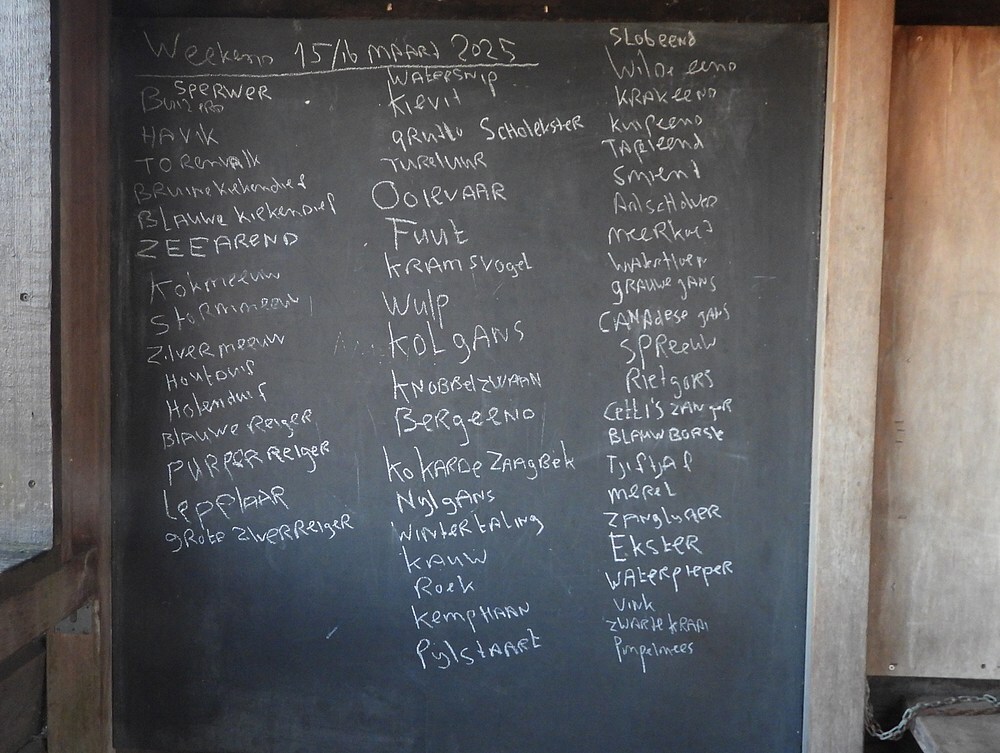 Weekend 15/16 MAART 2025
SPERWER
Buizerd
HAVIK
TORENvalk
BRUINE KIEKENDIEF
BLAUWE KIEKENDIEF
ZEEAREND
KOKMEEUW
STORMMEEUW
ZILVERMEEUW
HOUTDUIF
HOLENDUIF
BLAUWE REIGER
PURPERREIGER
LEPELAAR
GROTE ZILVERREIGER
WATERSNIP
KIEVIT
GRUTTO SCHOLEKSTER
TURELUUR
OOIEVAAR
FUUT
KRAMSVOGEL
WULP
KOLGANS
KNOBBELZWAAN
BERGEEND
KOKARDEZAAGBEK
NYLGANS
WINTERTALING
KAUW
ROEK
KEMPHAAN
PYLSTAART
SLOBEEND
WILDE EEND
KRAKEEND
KUIFEEND
TAFELEEND
SMIENT
AALSCHOLVER
MEERKOET
WATERHOEN
GRAUWE GANS
CANADESE GANS
SPREEUW
RIETGORS
CETTI'S ZANGER
BLAUWBORST
TJIFTJAF
MEREL
ZANGLYSTER
EKSTER
WATERPIEPER
VINK
ZWARTE KRAAI
PIMPELMEES